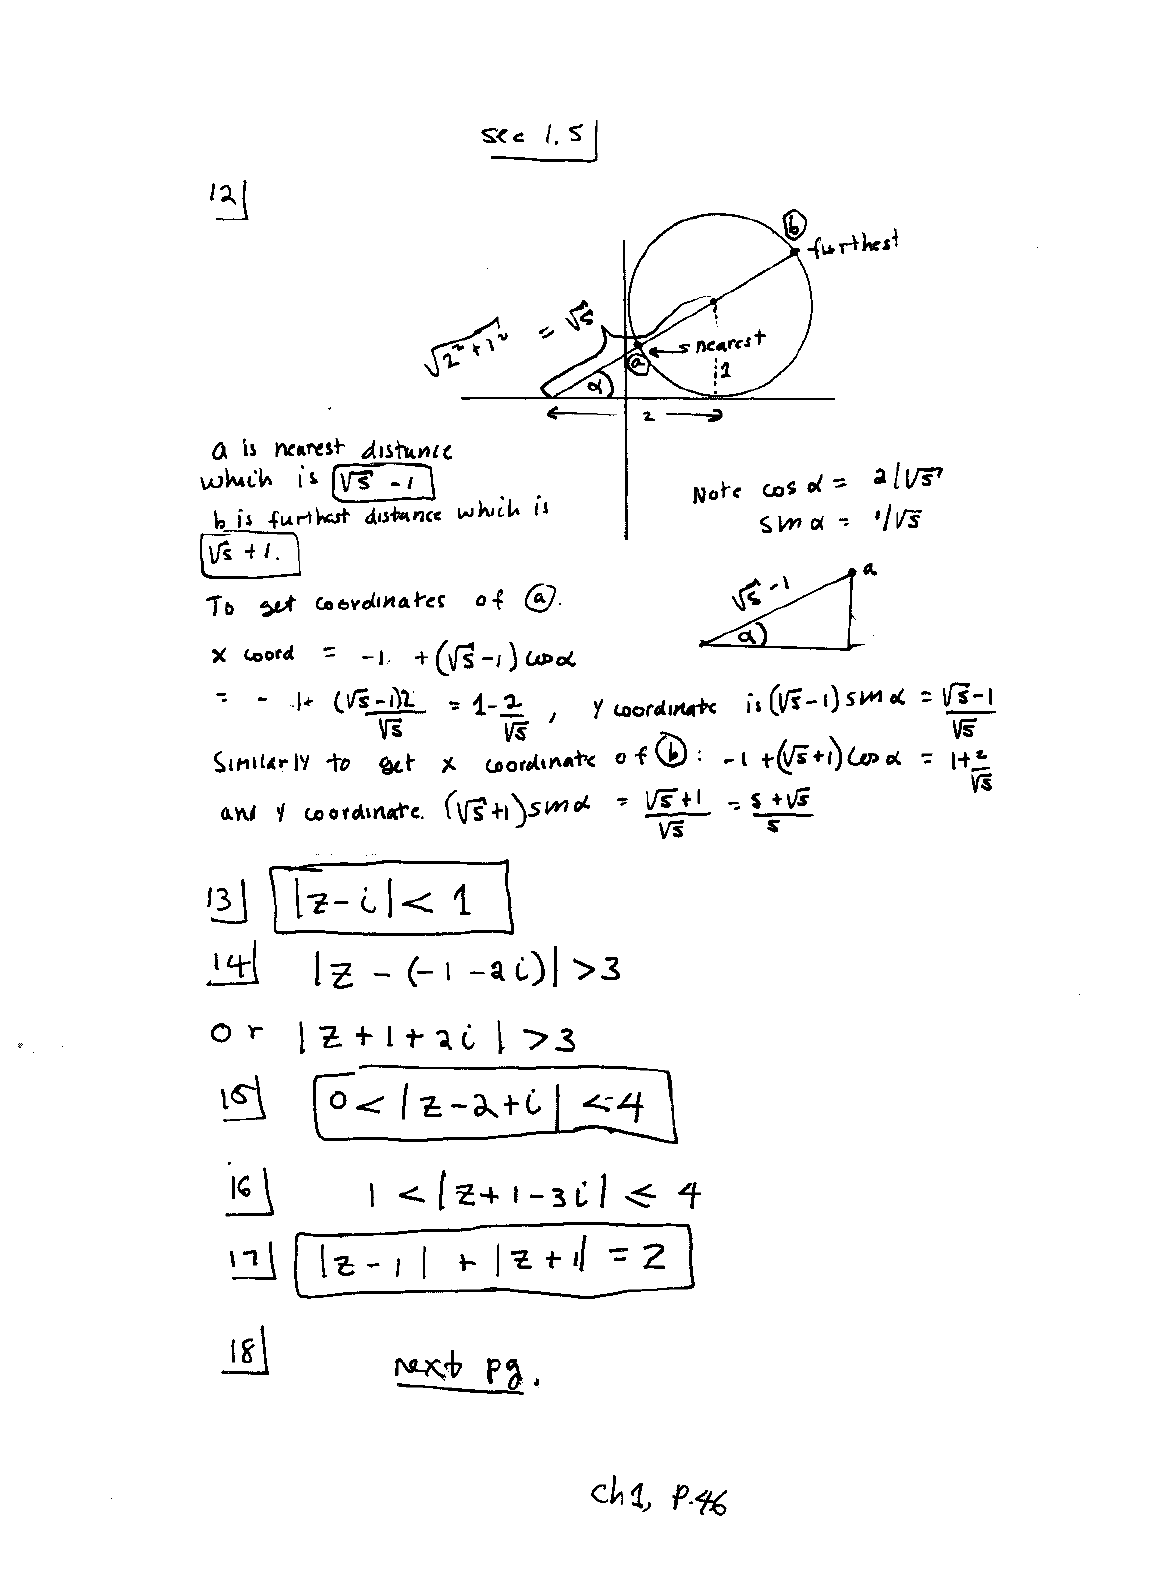 sec 1.5
12
b
furthest
√2²+1² = √5
nearest
a
1
α
2
a is nearest distance
which is √5 -1
b is furthest distance which is
√5 +1.
Note cos α = 2/√5
sin α = 1/√5
To get coordinates of a.
√5 -1
a
α
x coord = -1 + (√5 -1) cos α
= - 1+ (√5 -1)2/√5 = 1-2/√5, y coordinate is (√5-1) sin α = √5-1/√5
Similarly to get x coordinate of b: -1 +(√5+1) cos α = 1+2/√5
and y coordinate. (√5+1) sin α = √5+1/√5 = 5+√5/5
13 |z-i| < 1
14 |z - (-1 -2i)| >3
or |z+1+2i| >3
15 0< |z-2+i| ≤4
16 1 < |z+1-3i| ≤ 4
17 |z-1| + |z+1| = 2
18 next pg.
ch1, P.46